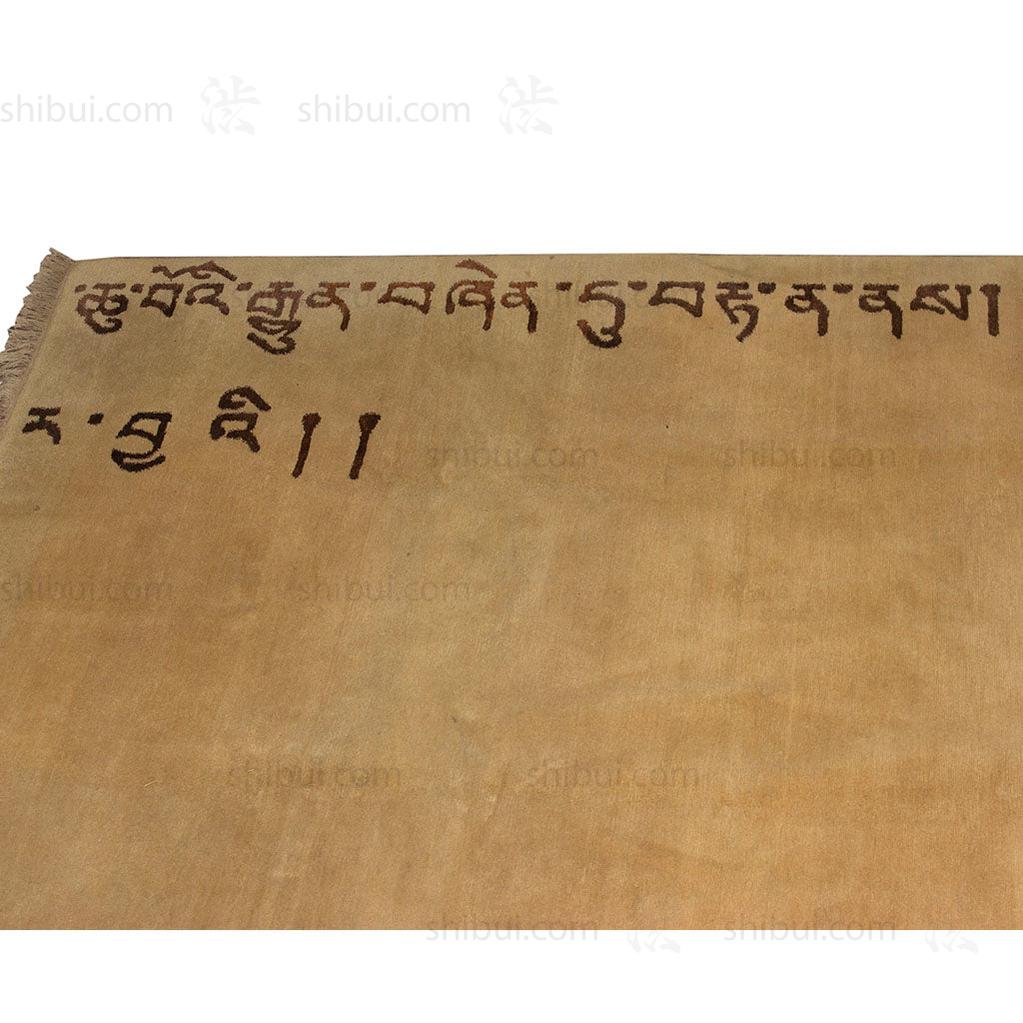 shibui.com 渋 shibui.com 渋
་ཆུ་བོའི་རྒྱུན་བཞིན་དུ་བརྟ་ན་ནས།
ར་བྱ འི།།
shibui.com shibui.com
shibui.com shibui.com
shibui.com shibui.com
shibui.com 渋 shibui.com 渋